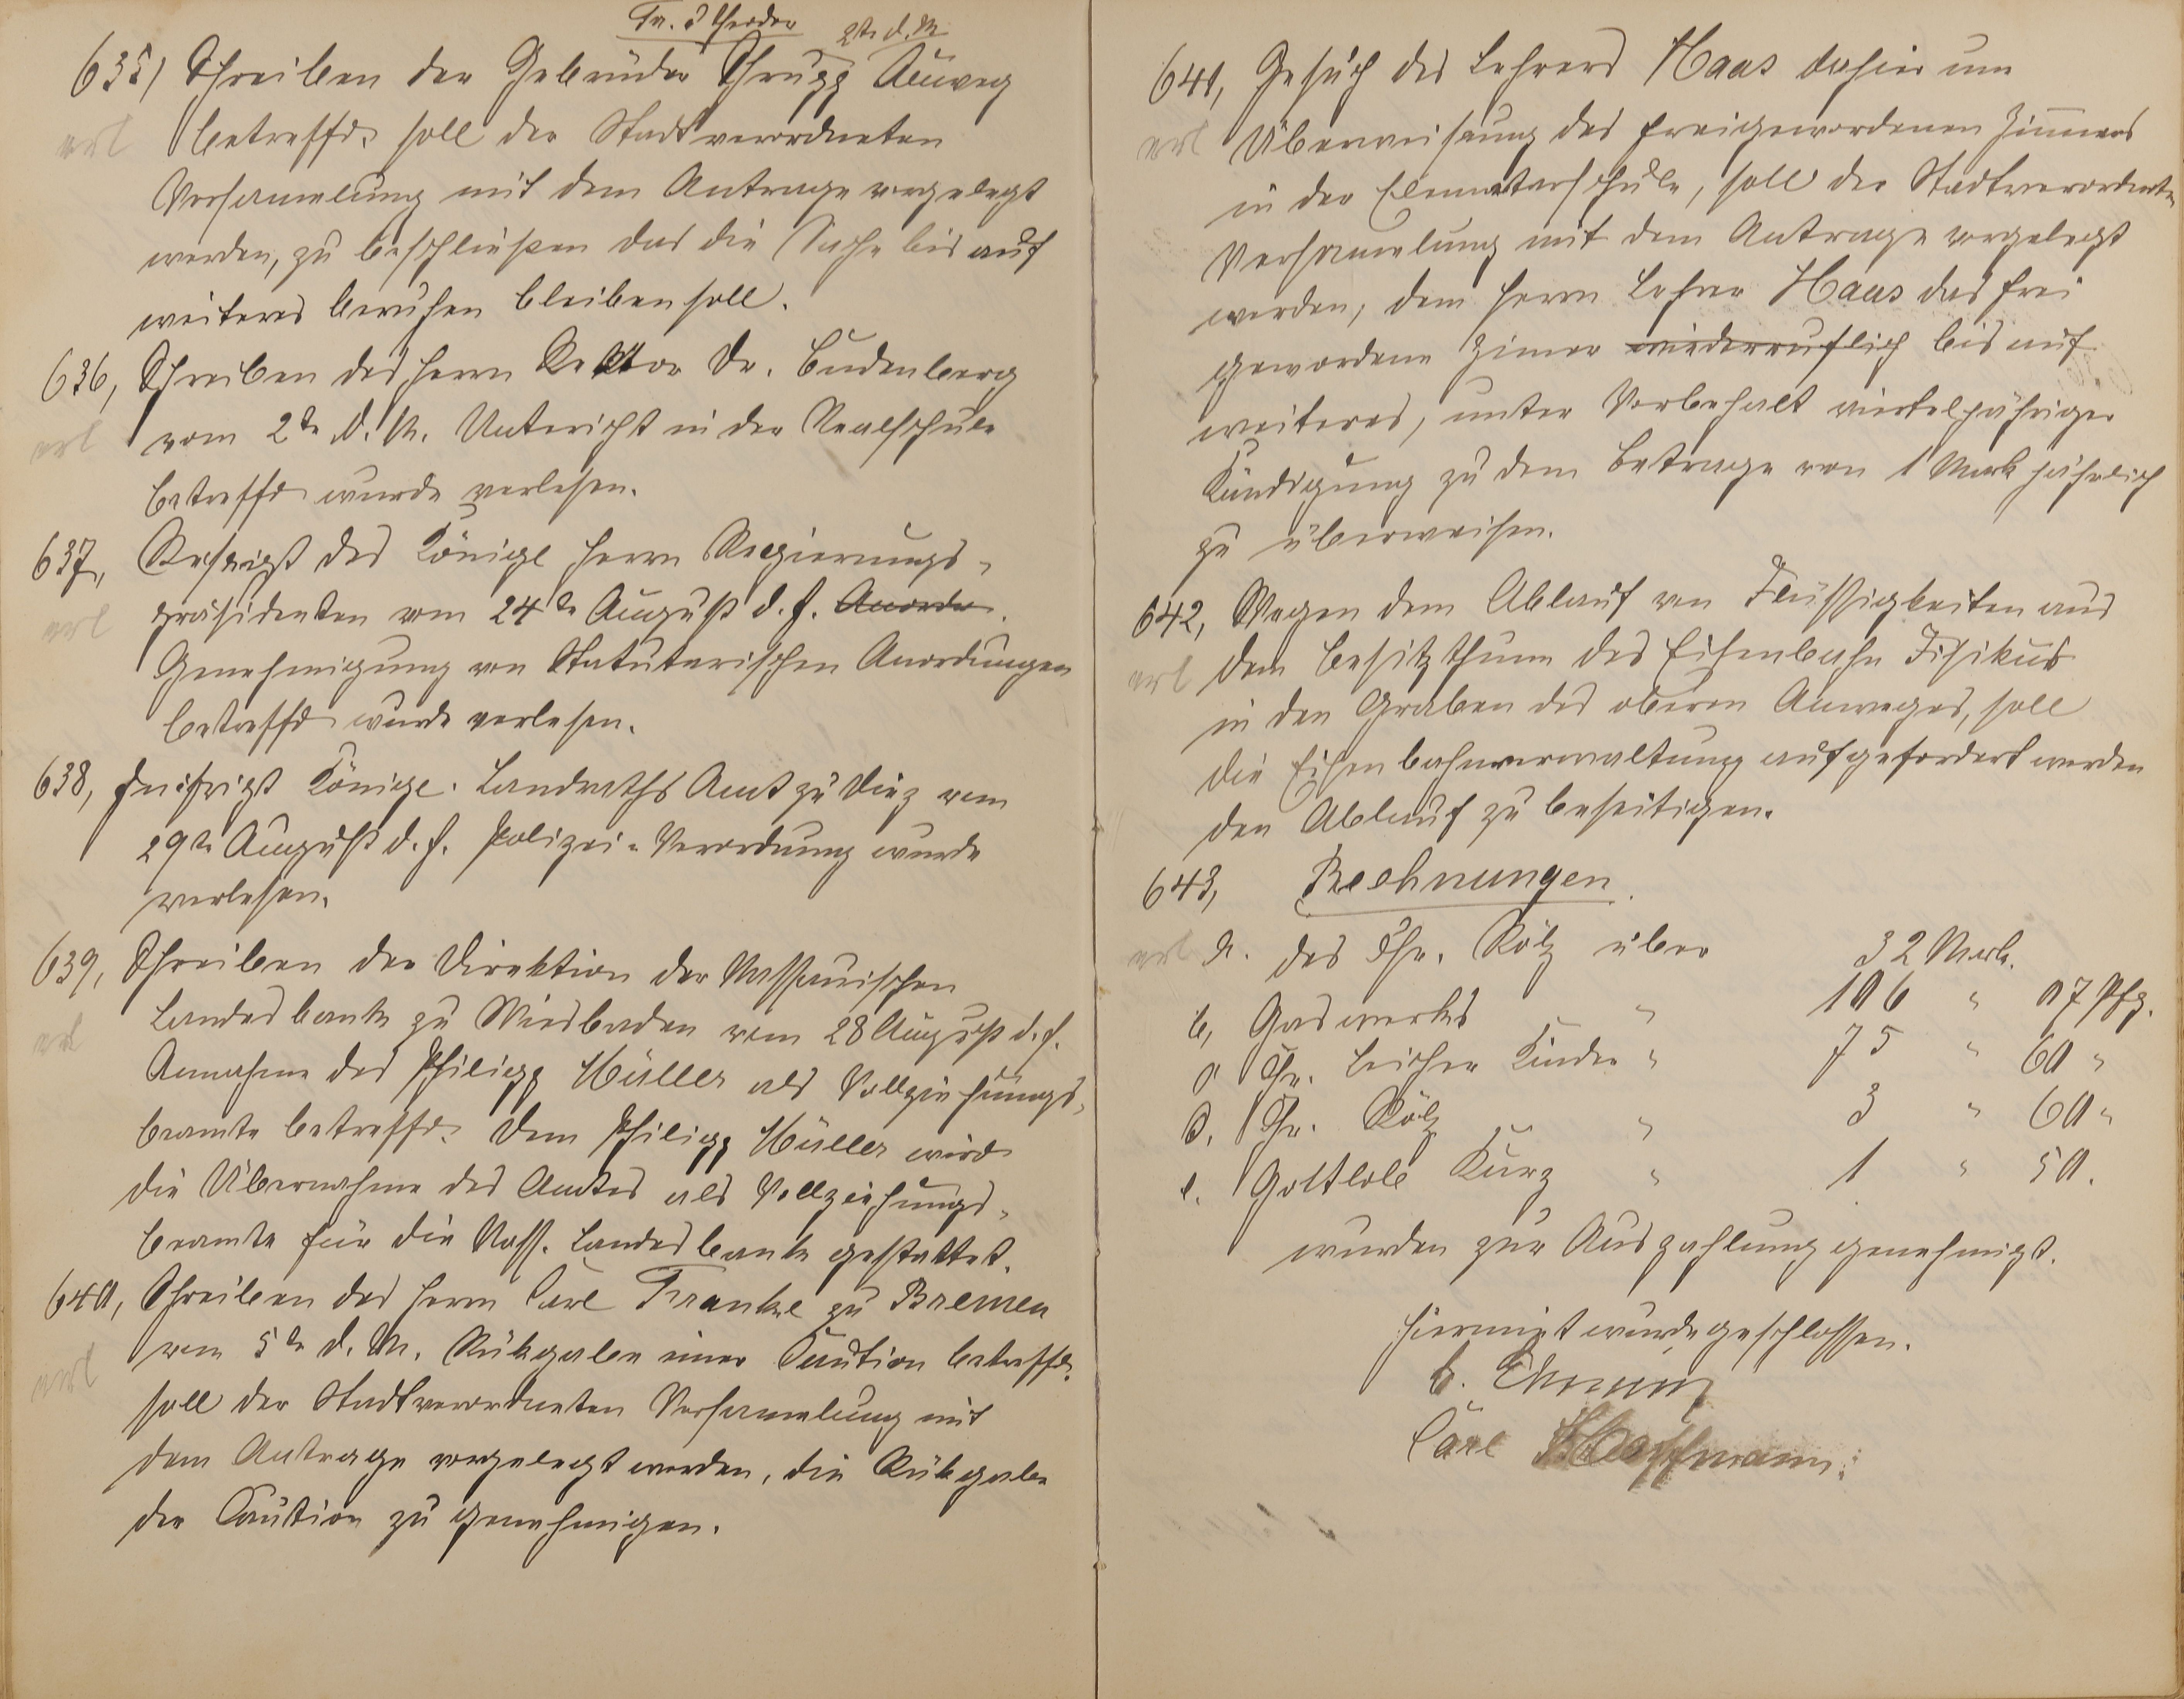 Fr. & Theodor 2te d. M.
635) Schreiben der Gebrüder Thrupp Auweg
erl betreffd. soll der Stadtverordneten
Versamelung mit dem Antrage vorgelegt
werden, zu beschließen das die Sache bis auf
weiteres beruhen bleiben soll.
636, Schreiben des Herrn Rektor Dr. Budenberg
erl vom 2te d. M. Untericht in der Realschule
betreffd wurde verlesen.
637, Reskript des Königl Herrn Regierungs-
erl präsidenten vom 24te August d. J. Anordn.
Genehmigung von Statutarischen Anordnungen
betreffd wurde verlesen.
638, Inskript Königl. Landraths Amt zu Diez vom
29te August d. J. Polizei-Verordnung wurde
verlesen.
639, Schreiben der Direktion der Nassauischen
erl Landesbank zu Wiesbaden vom 28 August d. J.
Annahme des Philipp Müller als Vollziehungs-
beamte betreffd. Dem Philipp Müller wird
die Übernahme des Amtes als Vollziehungs-
beamte für die Nass. Landesbank gestattet.
640, Schreiben des Herrn Carl Franke zu Bremen
erl vom 5te d. M. Rükgabe einer Caution betreffd.
soll der Stadtverordneten Versamelung mit
dem Antrage vorgelegt werden, die Rükgabe
der Caution zu genehmigen.
641, Gesuch des Lehrers Haas dahier um
erl Überweisung des freigewordenen Zimmers
in der Elementarschule, soll der Stadtverordneten
Versamelung mit dem Antrage vorgelegt
werden, dem Herrn Lehrer Haas das frei
gewordene Zimer wiederruflich bis auf
weiteres, unter Vorbehalt vierteljähriger
Kündigung zu dem Betrage von 1 Mark jährlich
zu überweisen.
642, Wegen dem Ablauf von Flüssigkeiten aus
erl dem Besitzthum des Eisenbahn Fisikus
in den Graben des oberen Auweges, soll
die Eisenbahnverwaltung aufgefordert werden
den Ablauf zu beseitigen.
643, Rechnungen.
erl a. des Chr. Kölz über 32 Mark.
b, Gaswerks " 106 " 07 Pfg.
c Chr. Leicher Kinder " 75 " 60 "
d. Chr. Kölz " 3 " 60 "
e. Gottlob Kurz " 1 " 50.
wurden zur Auszahlung genehmigt.
Hiermit wurde geschlossen.
Carl Hoffmann.